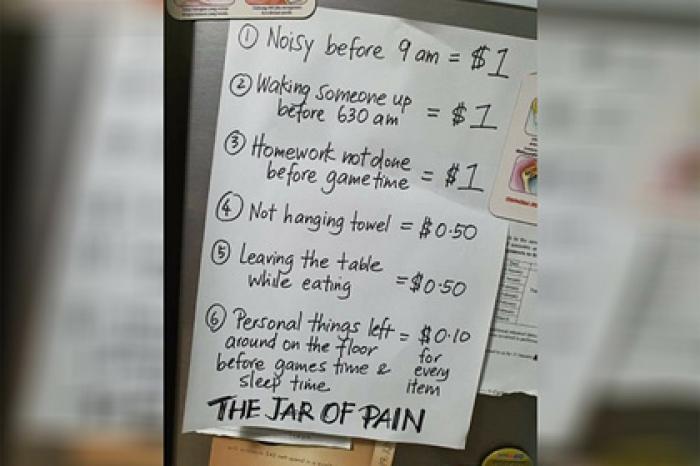 ① Noisy before 9 am = $1
② Waking someone up
before 630 am = $1
③ Homework not done
before game time = $1
④ Not hanging towel = $0.50
⑤ Leaving the table
while eating = $0.50
⑥ Personal things left = $0.10
around on the floor for
before games time & every
sleep time item
THE JAR OF PAIN